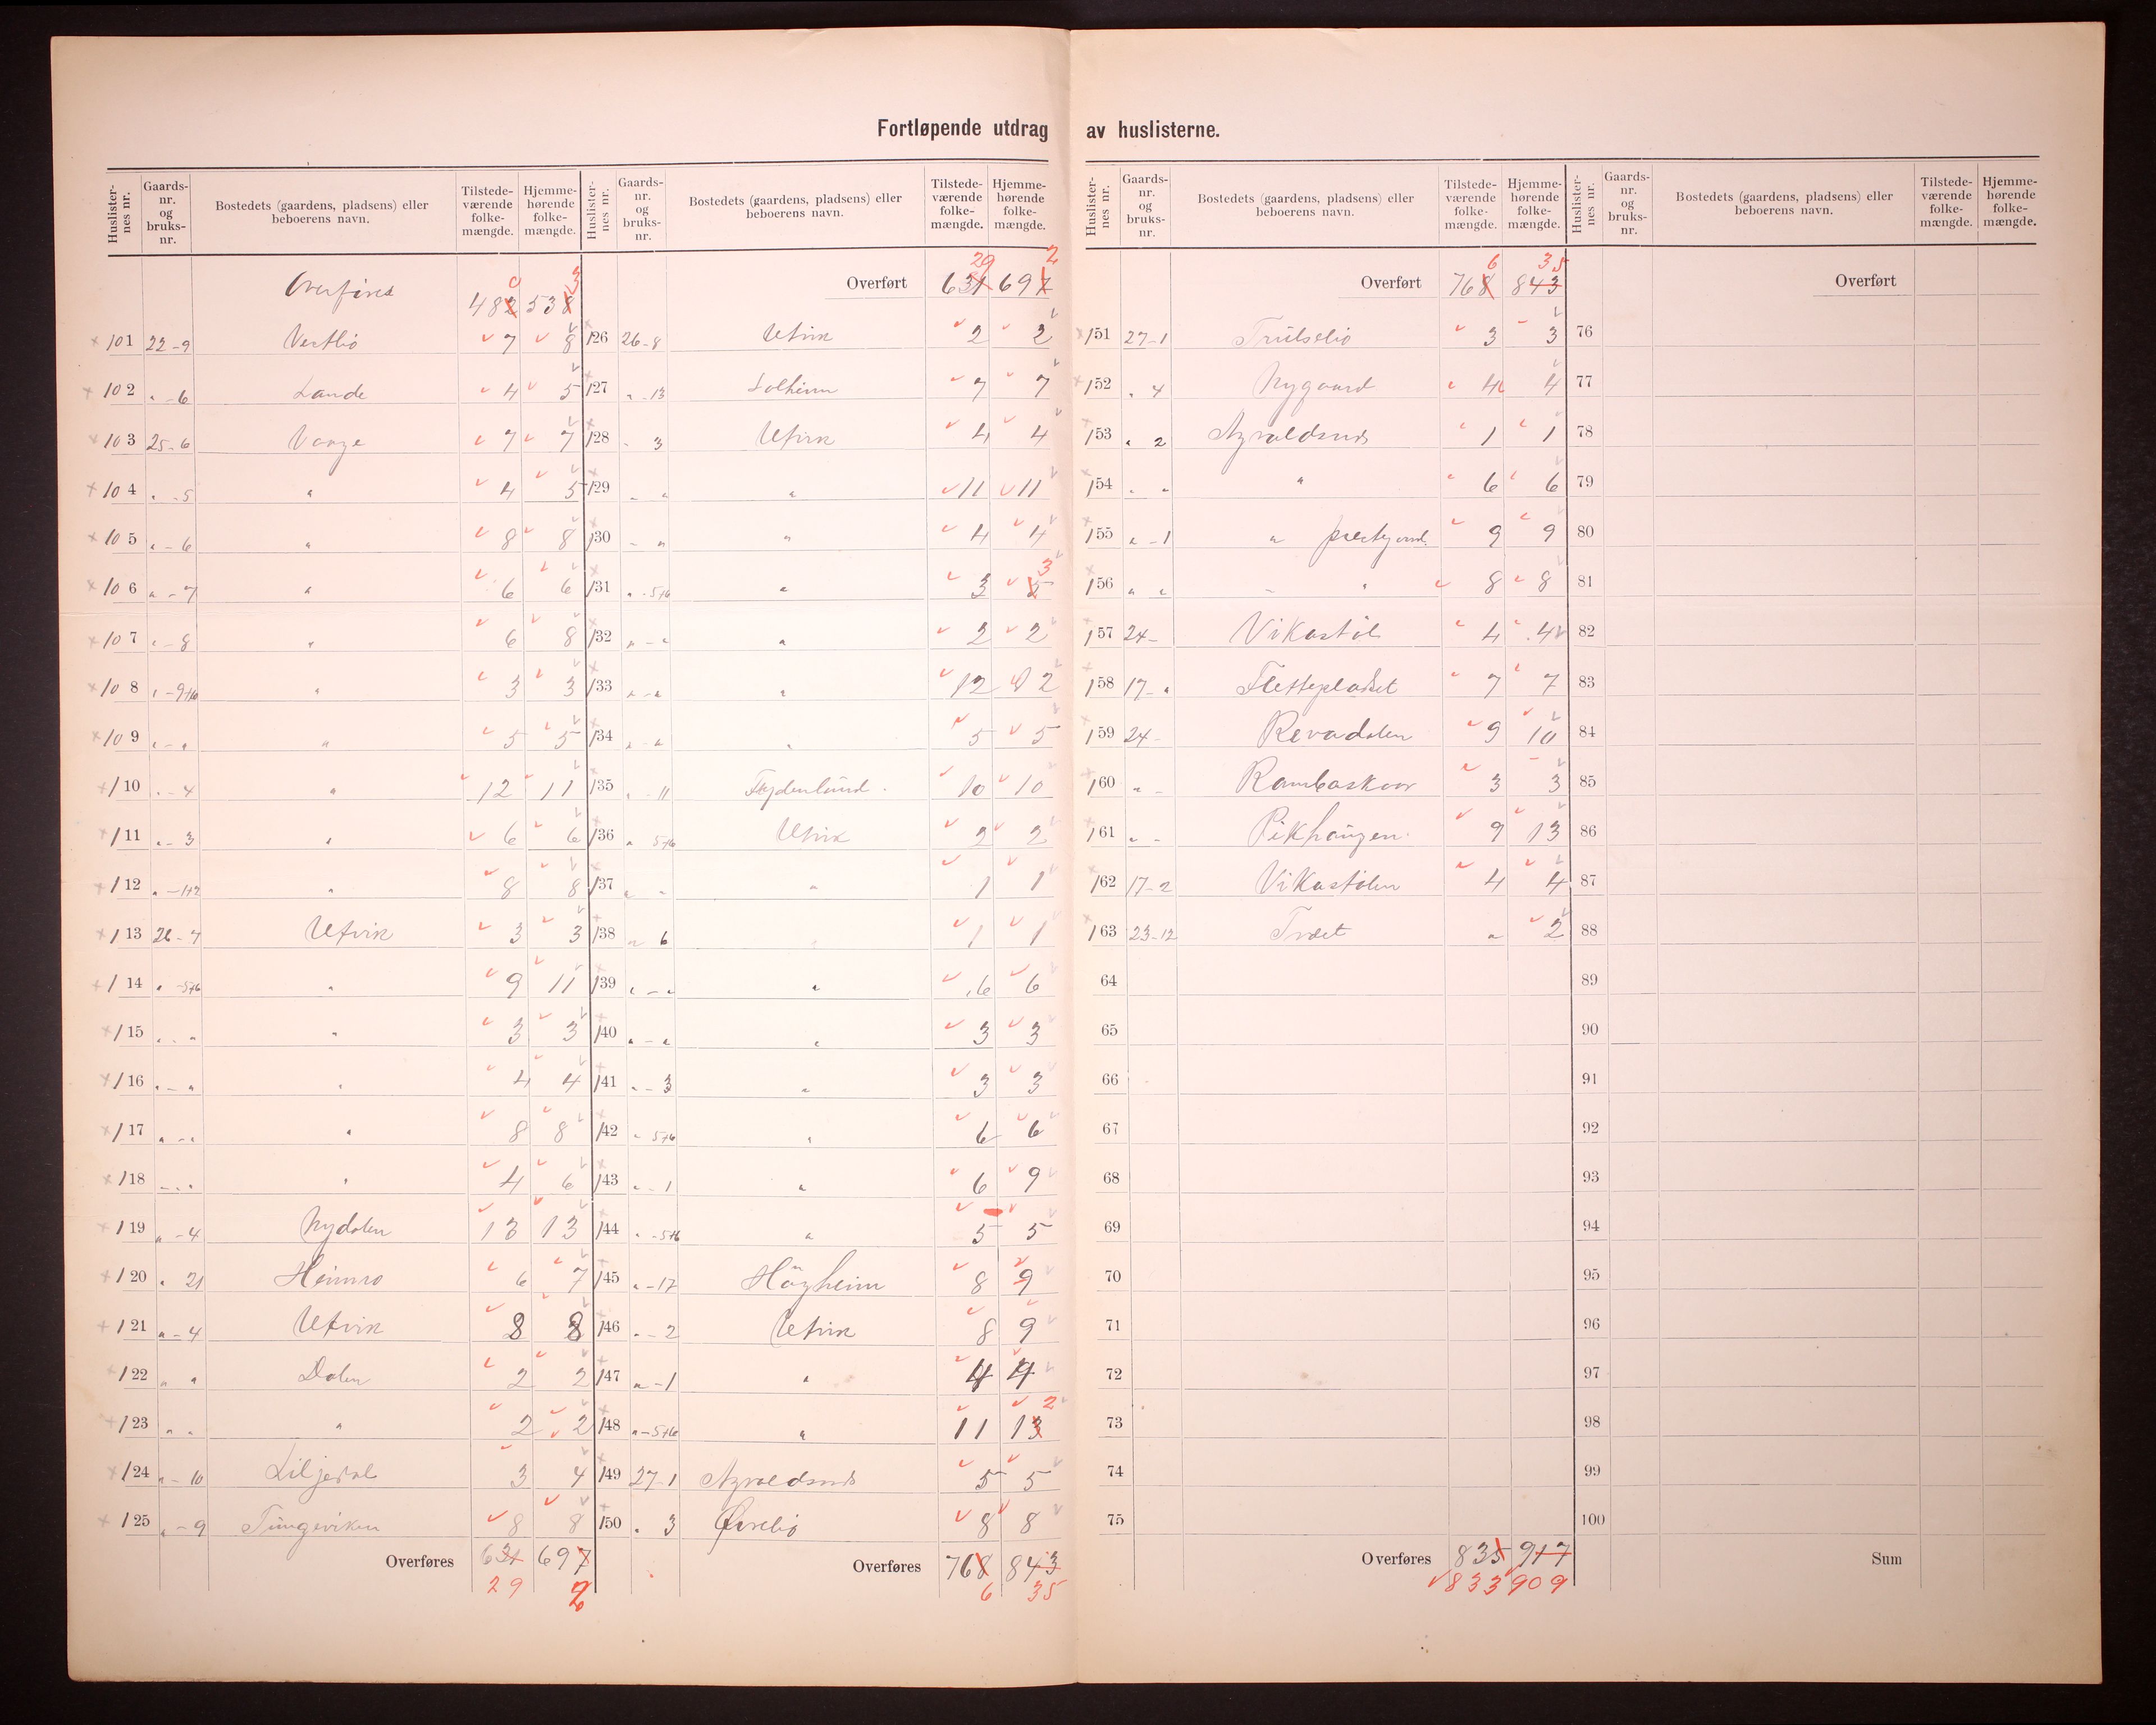 Fortløpende utdrag av huslisterne.
Huslister-nes nr. Gaards-nr. og bruks-nr. Bostedets (gaardens, pladsens) eller beboerens navn. Tilstede-værende folke-mængde. Hjemme-hørende folke-mængde.
Overføres 482 538
0 3
101 22-9 Vestlid 7 8
102 " -6 Lande 4 5
103 25-6 Vange 7 7
104 " -5 " 4 5
105 " -6 " 8 8
106 " -7 " 6 6
107 " -8 " 6 8
108 " -9+16 " 3 3
109 " - " " 5 5
110 " -4 " 12 11
111 " -3 " 6 6
112 " -1+2 " 8 8
113 26-7 Utvik 3 3
114 " -5+6 " 9 11
115 " - " " 3 3
116 " - " " 4 4
117 " - " " 8 8
118 " - " " 4 6
119 " -4 Nydalen 13 13
120 " 21 Heimro 6 7
121 " -4 Utvik 8 8
122 " " Dalen 2 2
123 " " " 2 2
124 " -10 Liljedal 3 4
125 " -9 Tungeviken 8 8
Overføres 631 697
29 2
Huslister-nes nr. Gaards-nr. og bruks-nr. Bostedets (gaardens, pladsens) eller beboerens navn. Tilstede-værende folke-mængde. Hjemme-hørende folke-mængde.
29 2
Overført 631 697
126 26-8 Utvik 2 2
127 " -13 Solheim 7 7
128 " 3 Utvik 4 4
129 " " " 11 11
130 " " " 4 4
131 " -5+6 " 3 5 3
132 " - " " 2 2
133 " - " " 12 12
134 " - " " 5 5
135 " -11 Frydenlund. 10 10
136 " 5+6 Utvik 2 2
137 " " " 1 1
138 " 6 " 1 1
139 " - " " 6 6
140 " - " " 3 3
141 " -3 " 3 3
142 " 5+6 " 6 6
143 " -1 " 6 9
144 " -5+6 " 5 5
145 " -17 Högheim 8 9
146 " -2 Utvik 8 9
147 " -1 " 4 4
148 " -5+6 " 11 13 2
149 27-1 5 5
150 " 3 Øvrelid 8 8
Overføres 768 843
6 35
Huslister-nes nr. Gaards-nr. og bruks-nr. Bostedets (gaardens, pladsens) eller beboerens navn. Tilstede-værende folke-mængde. Hjemme-hørende folke-mængde.
6 35
Overført 768 843
151 27-1 Trulselid 3 3
152 " 4 Nygaard 4 4
153 " 2 1 1
154 " " " 6 6
155 " -1 " 9 9
156 " " " " 8 8
157 24- Vikastøl 4 4
158 17- " 7 7
159 24- Revadalen 9 10
160 " - Rambaskaar 3 3
161 " - Pikhaugen. 9 13
162 17-2 Vikastølen 4 4
163 23-12 Trædet " 2
64
65
66
67
68
69
70
71
72
73
74
75
Overføres 835 917
833 909
Huslister-nes nr. Gaards-nr. og bruks-nr. Bostedets (gaardens, pladsens) eller beboerens navn. Tilstede-værende folke-mængde. Hjemme-hørende folke-mængde.
Overført
76
77
78
79
80
81
82
83
84
85
86
87
88
89
90
91
92
93
94
95
96
97
98
99
100
Sum